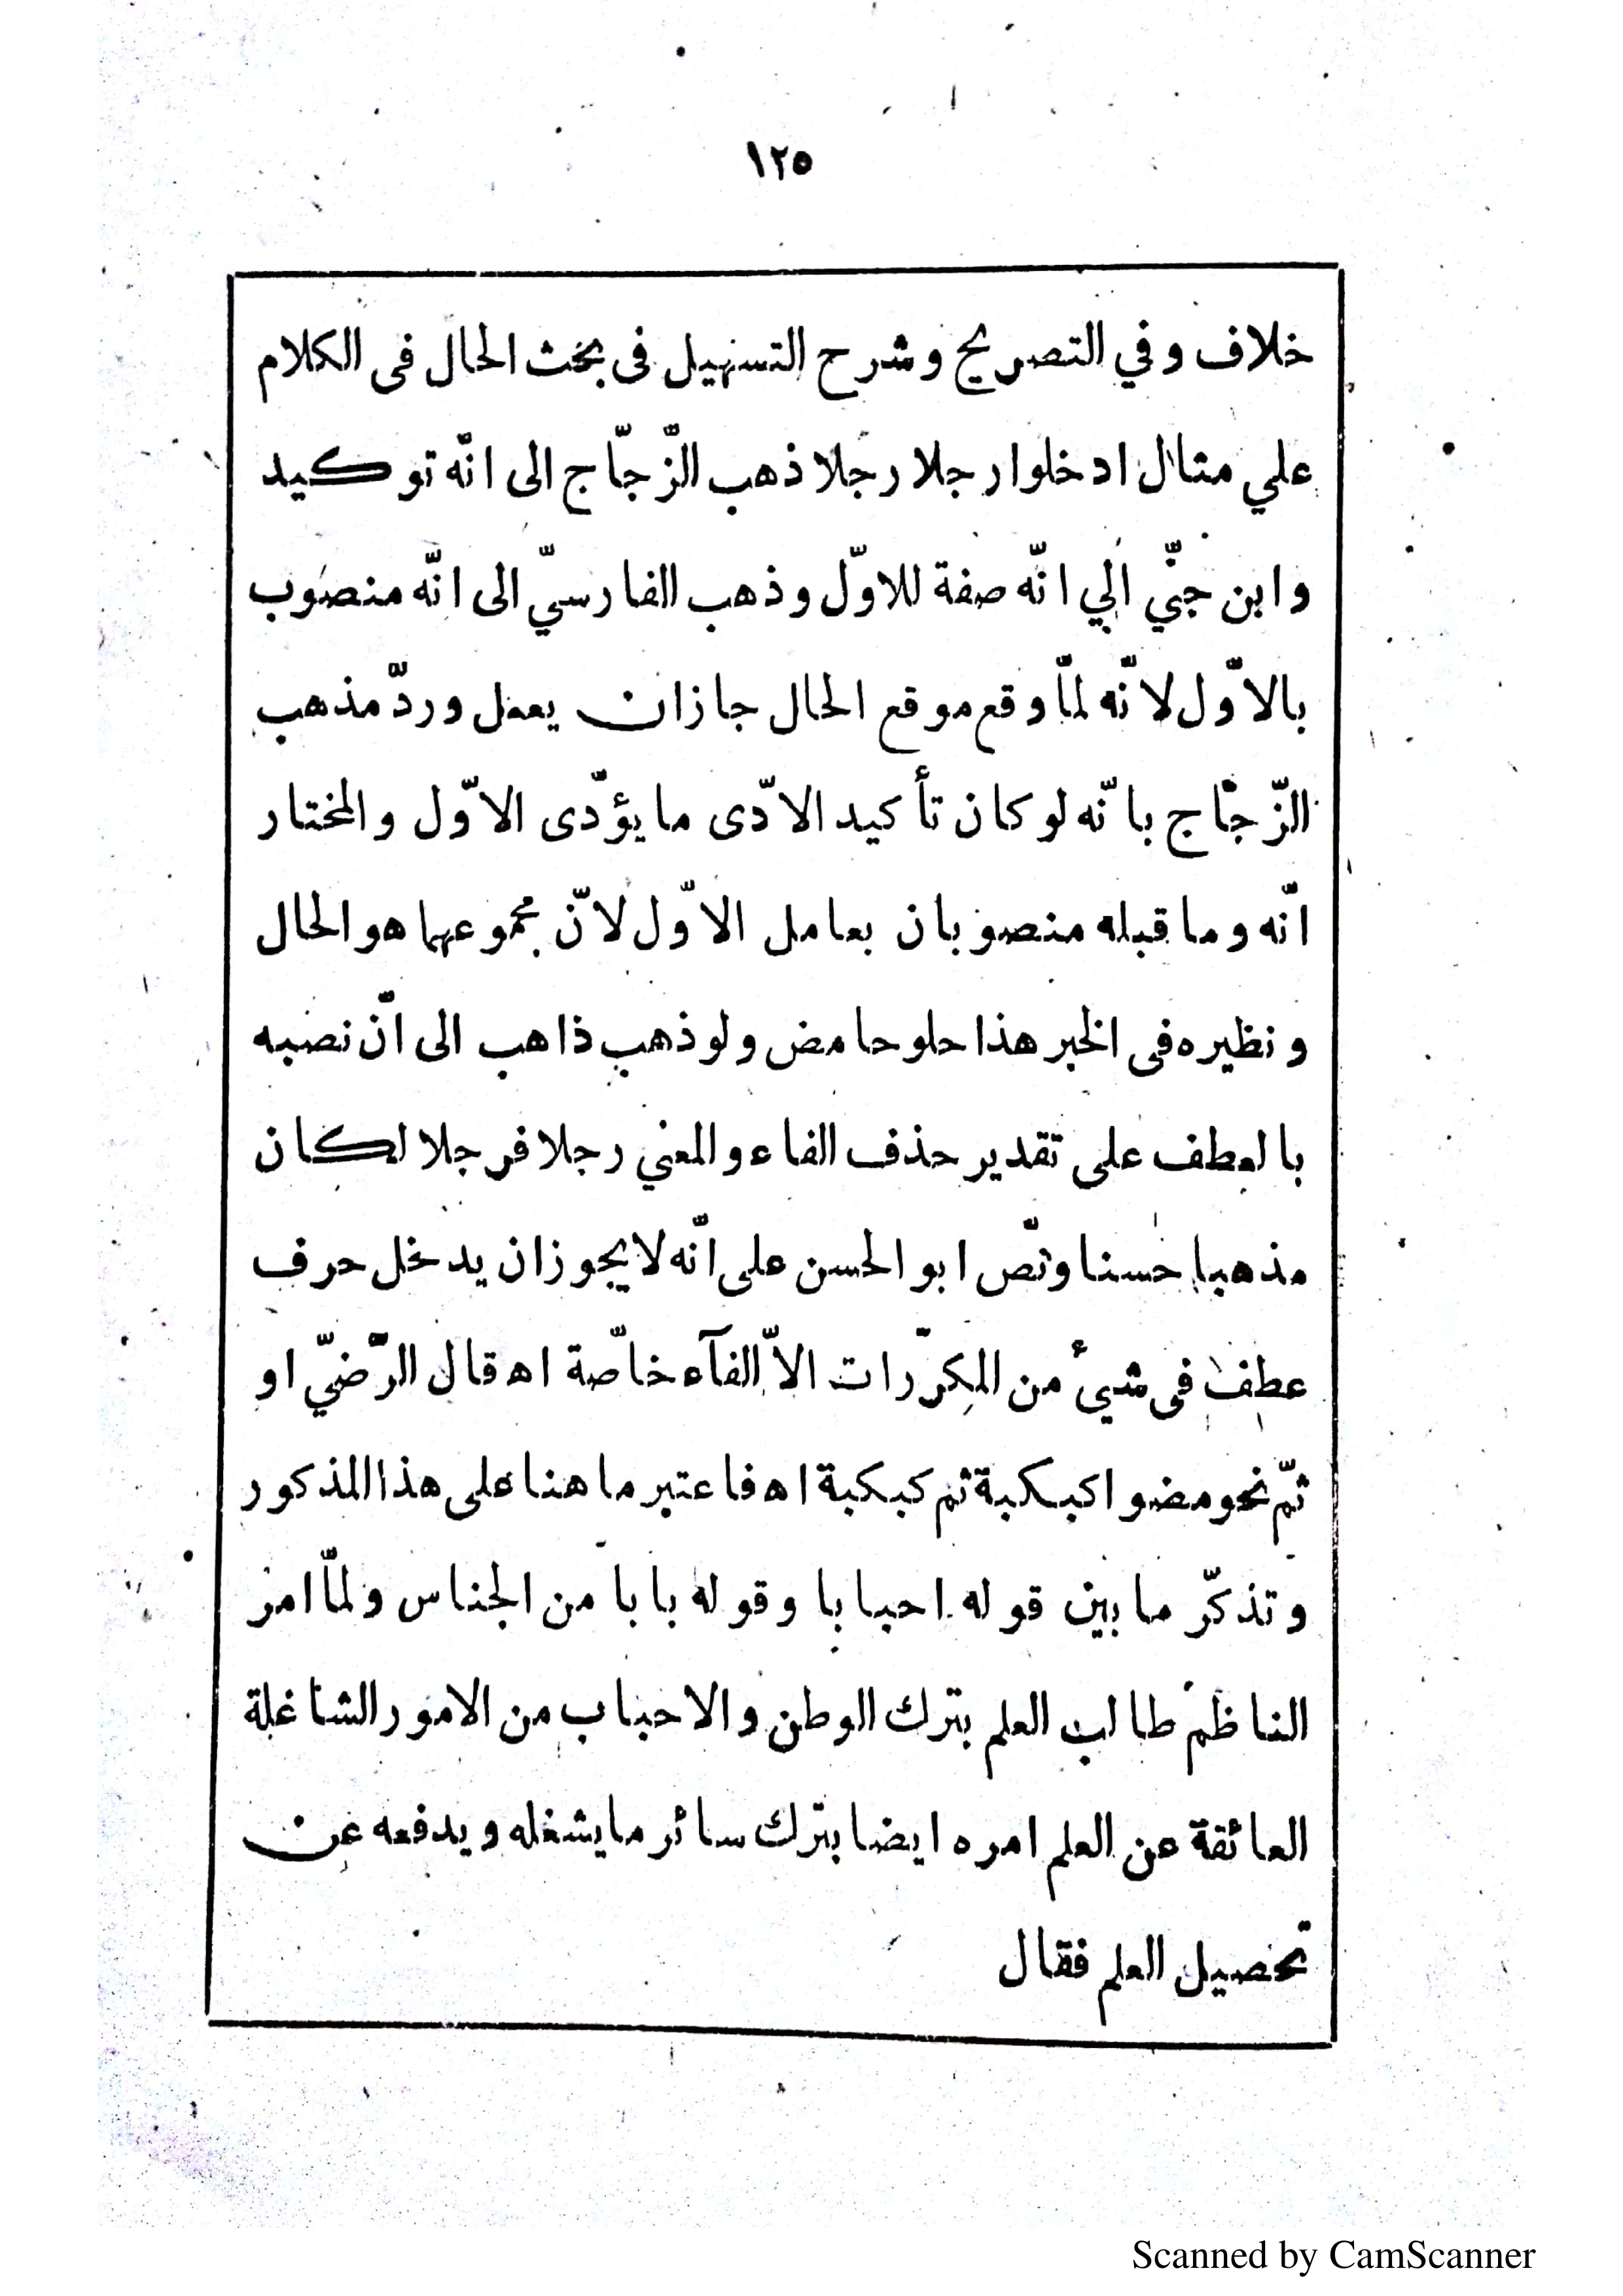 ١٢٥
خلاف وفي التصريح وشرح التسهيل فى بحث الحال فى الكلام
علي مثال ادخلوا رجلا رجلا ذهب الزّجّاج الى انّه توكيد
وابن جنّي الي انّه صفة للاوّل وذهب الفارسيّ الى انّه منصوب
بالاوّل لانّه لمّا وقع موقع الحال جازان يعمل وردّ مذهب
الزّجّاج بانّه لو كان تأكيد الادّى ما يؤدّى الاوّل والمختار
انّه وما قبله منصوبان بعامل الاوّل لانّ مجموعهما هو الحال
ونظيره فى الخبر هذا حلو حامض ولو ذهب ذاهب الى انّ نصبه
بالعطف على تقدير حذف الفاء والمعني رجلا فرجلا لكان
مذهبا حسنا ونصّ ابو الحسن على انّه لا يجوز ان يدخل حرف
عطف فى شيئ من المكرّرات الاّ الفآء خاصّة اه قال الرّضيّ او
ثمّ نحو مضوا كبكبة ثم كبكبة اه فاعتبر ما هنا على هذا المذكور
وتذكّر ما بين قوله احبابا وقوله بابا من الجناس ولمّا امر
الناظم طالب العلم بترك الوطن والاحباب من الامور الشاغلة
العائقة عن العلم امره ايضا بترك سائر ما يشغله ويدفعه عن
تحصيل العلم فقال
Scanned by CamScanner